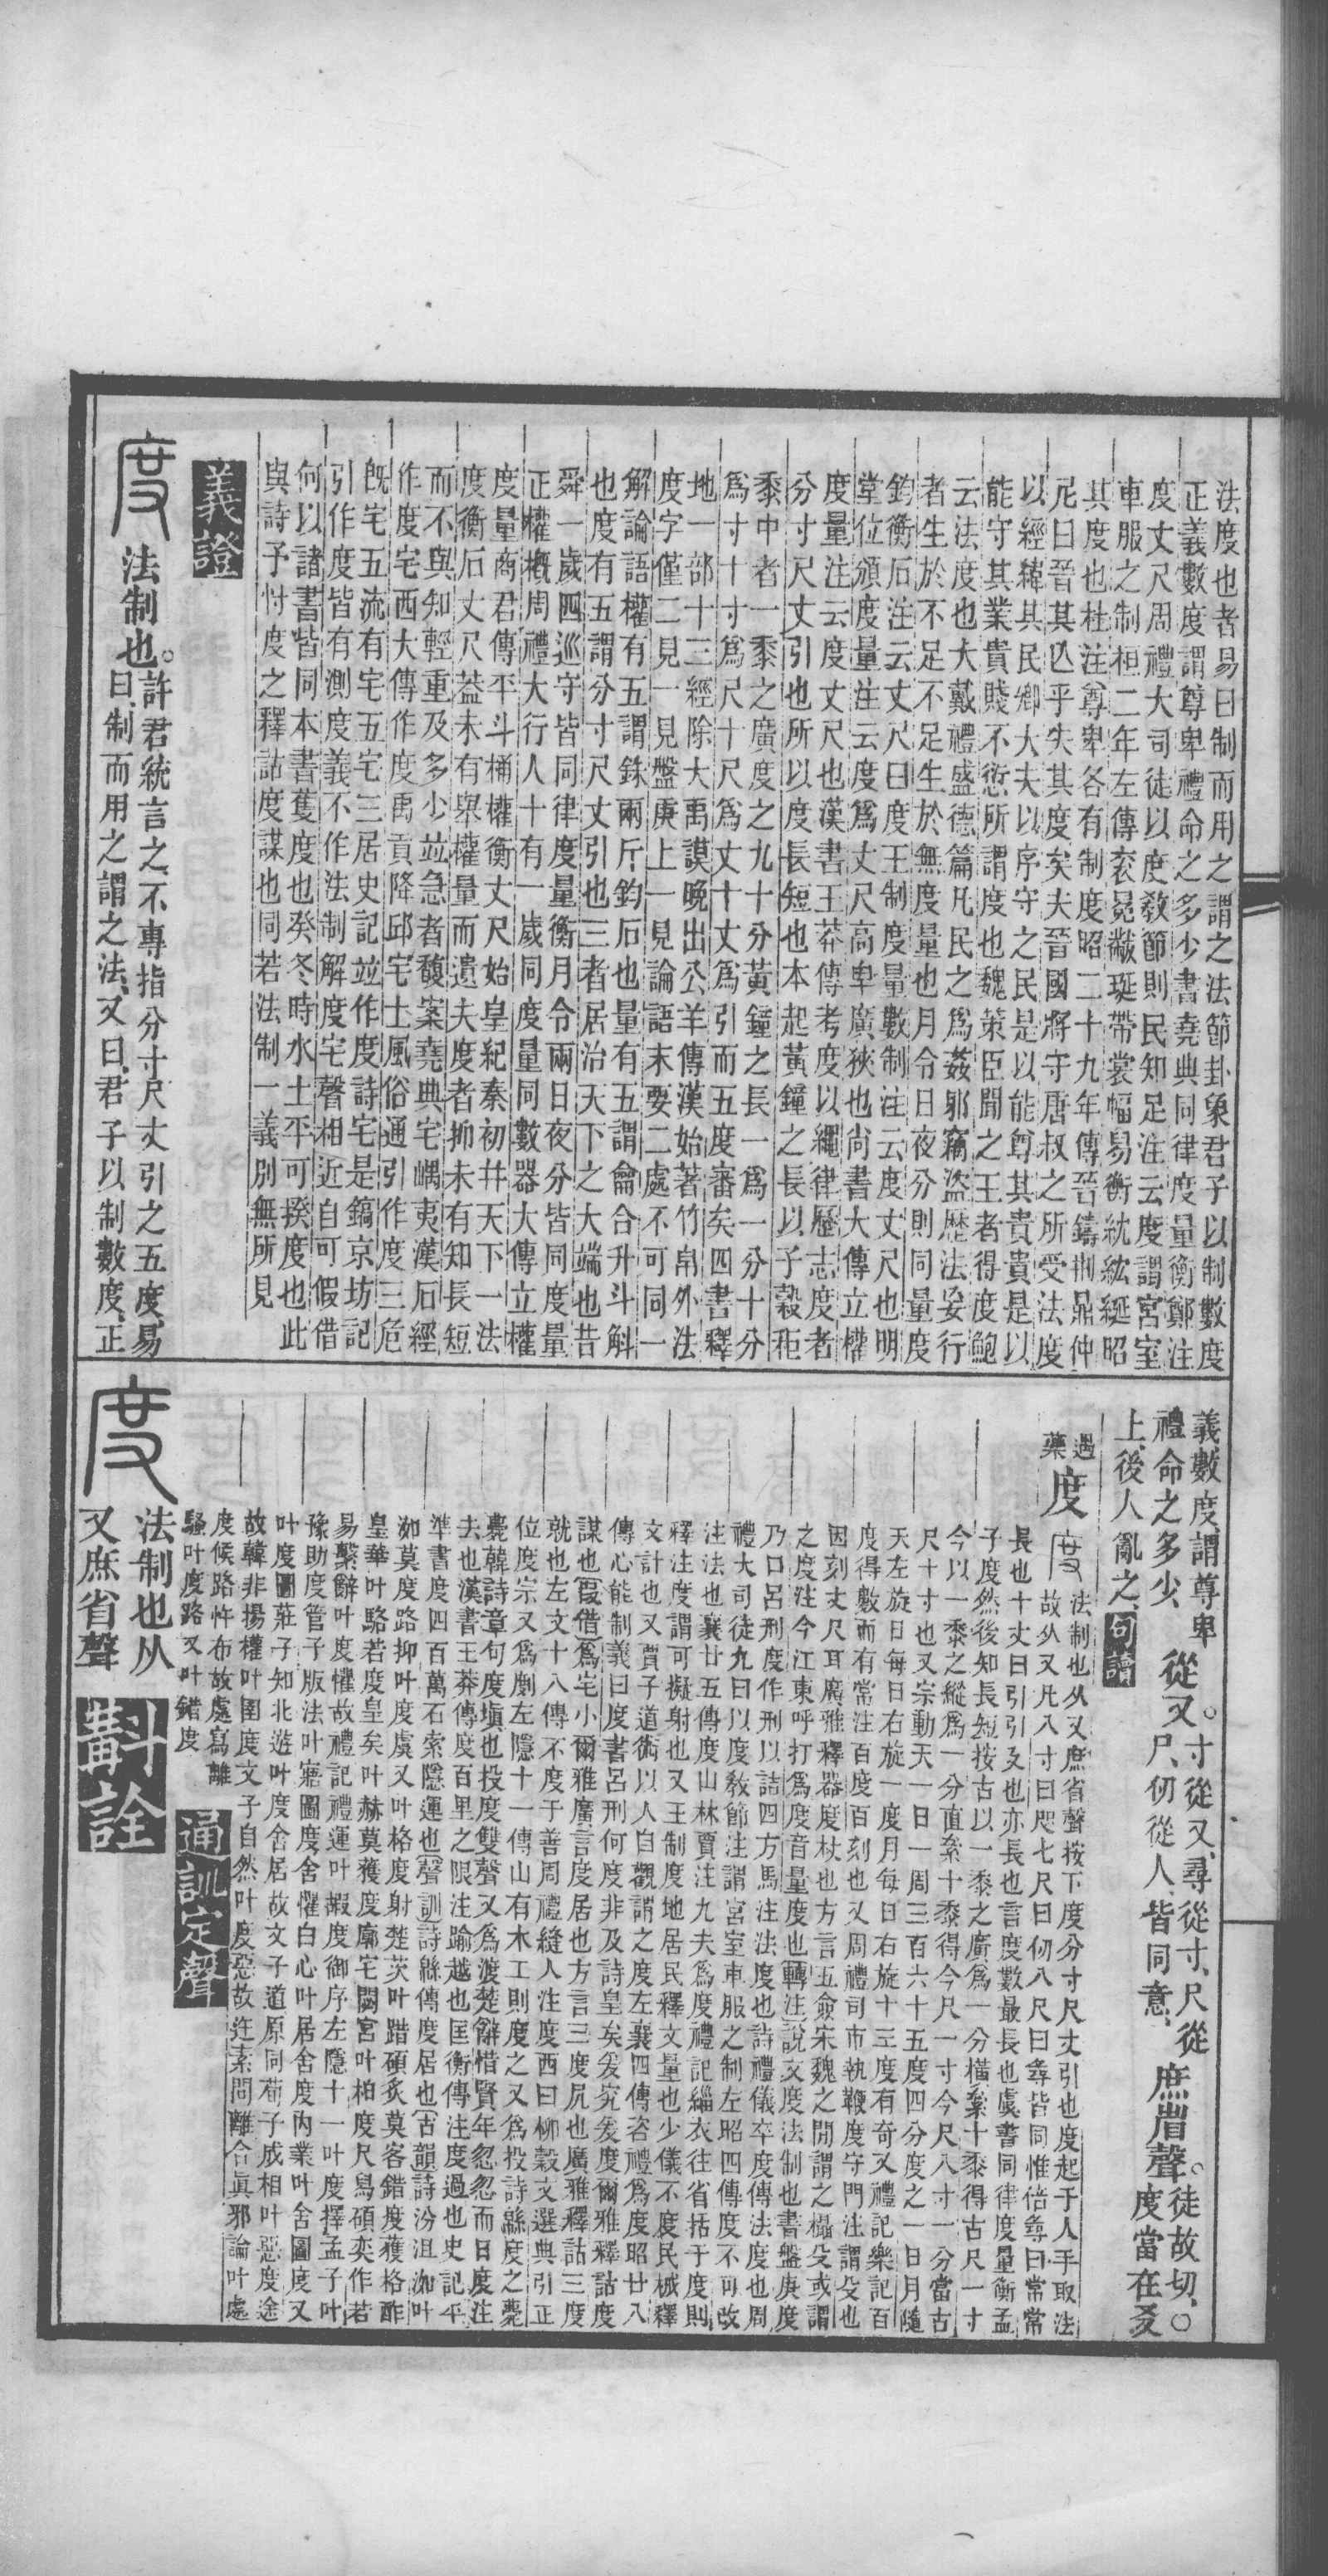 法度也者易曰制而用之謂之法節卦象君子以制數度
正義數度謂尊卑禮命之多少書堯典同律度量衡鄭注
度丈尺周禮大司徒以度敎節則民知足注云度謂宮室
車服之制桓二年左傳衮冕黻珽帶裳幅舄衡紞紘綖昭
其度也杜注尊卑各有制度昭二十九年傳晉鑄荆鼎仲
尼曰晉其亾乎失其度矣夫晉國將守唐叔之所受法度
以經緯其民卿大夫以序守之民是以能尊其貴貴是以
能守其業貴賤不愆所謂度也魏策臣聞之王者得度鮑
云法度也大戴禮盛德篇凡民之爲姦邪竊盜歷法妄行
者生於不足不足生於無度量也月令日夜分則同量度
鈞衡石注云丈尺曰度王制度量數制注云度丈尺也明
堂位頒度量注云度爲丈尺高卑廣狹也尚書大傳立權
度量注云度丈尺也漢書王莽傳考度以繩律歷志度者
分寸尺丈引也所以度長短也本起黃鐘之長以子穀秬
黍中者一黍之廣度之九十分黃鐘之長一爲一分十分
爲寸十寸爲尺十尺爲丈十丈爲引而五度審矣四書釋
地一部十三經除大禹謨晚出公羊傳漢始著竹帛外法
度字僅二見一見盤庚上一見論語末要二處不可同一
解論語權有五謂銖兩斤鈞石也量有五謂龠合升斗斛
也度有五謂分寸尺丈引也三者居治天下之大端也昔
舜一歲四巡守皆同律度量衡月令兩日夜分皆同度量
正權概周禮大行人十有一歲同度量同數器大傳立權
度量商君傳平斗桶權衡丈尺始皇紀秦初幷天下一法
度衡石丈尺葢未有舉權量而遺夫度者抑未有知長短
而不與知輕重及多少竝急者馥案堯典宅嵎夷漢石經
作度宅西大傳作度禹貢降邱宅土風俗通引作度三危
旣宅五流有宅五宅三居史記竝作度詩宅是鎬京坊記
引作度皆有測度義不作法制解度宅聲相近自可假借
何以諸書皆同本書蒦度也癸冬時水土平可揆度也此
與詩予忖度之釋詁度謀也同若法制一義別無所見
義證
度
法制也。
許君統言之、不專指分寸尺丈引之五度、易
曰、制而用之謂之法、又曰、君子以制數度、正
義、數度、謂尊卑
禮命之多少、
從又。
寸從又、尋從寸、尺從
尸、仞從人、皆同意、
庶省聲。
徒故切、〇
度當在㕛
上、後人亂之、
句讀
遇
藥
度
法制也从又庶省聲按下度分寸尺丈引也度起于人手取法
故从又凡八寸曰咫七尺曰仞八尺曰尋皆同惟倍尋曰常常
長也十丈曰引引叉也亦長也言度數最長也虞書同律度量衡孟
子度然後知長短按古以一黍之廣爲一分橫絫十黍得古尺一寸
今以一黍之縱爲一分直絫十黍得今尺一寸今尺八寸一分當古
尺十寸也又宗動天一日一周三百六十五度四分度之一日月隨
天左旋日每日右旋一度月每日右旋十三度有奇又禮記樂記百
度得數而有常注百度百刻也又周禮司市執鞭度守門注謂殳也
因刻丈尺耳廣雅釋器度杖也方言五僉宋魏之閒謂之攝殳或謂
之度注今江東呼打爲度音量度也轉注說文度法制也書盤庚度
乃口呂刑度作刑以詰四方馬注法度也詩禮儀卒度傳法度也周
禮大司徒九曰以度敎節注謂宮室車服之制左昭四傳度不可改
注法也襄廿五傳度山林賈注九夫爲度禮記緇衣往省括于度則
釋注度謂可擬射也又王制度地居民釋文量也少儀不度民械釋
文計也又賈子道術以人自觀謂之度左襄四傳咨禮爲度昭廿八
傳心能制義曰度書呂刑何度非及詩皇矣爰究爰度爾雅釋詁度
謀也叚借爲宅小爾雅廣言度居也方言三度凥也廣雅釋詁三度
就也左文十八傳不度于善周禮縫人注度西曰柳穀文選典引正
位度宗又爲劇左隱十一傳山有木工則度之又爲投詩緜度之薨
薨韓詩章句度塡也投度雙聲又爲渡楚辭惜賢年忽忽而日度注
去也漢書王莽傳度百里之限注踰越也匡衡傳注度過也史記平
準書度四百萬石索隱運也聲訓詩緜傳度居也古韻詩汾沮洳叶
洳莫度路抑叶度虞又叶格度射楚茨叶踖碩炙莫客錯度獲格酢
皇華叶駱若度皇矣叶赫莫獲度廓宅閟宮叶柏度尺舄碩奕作若
易繫辭叶度懼故禮記禮運叶嘏度御序左隱十一叶度擇孟子叶
豫助度管子版法叶寤圖度舍懼白心叶居舍度內業叶舍圖度又
叶度圖莊子知北遊叶度舍居故文子道原同荀子成相叶惡度途
故韓非揚權叶圍度文子自然叶度惡故迕素問離合眞邪論叶處
度候路忤布故處寫離
騷叶度路又叶錯度
通訓定聲
度
法制也从
又庶省聲
斠詮